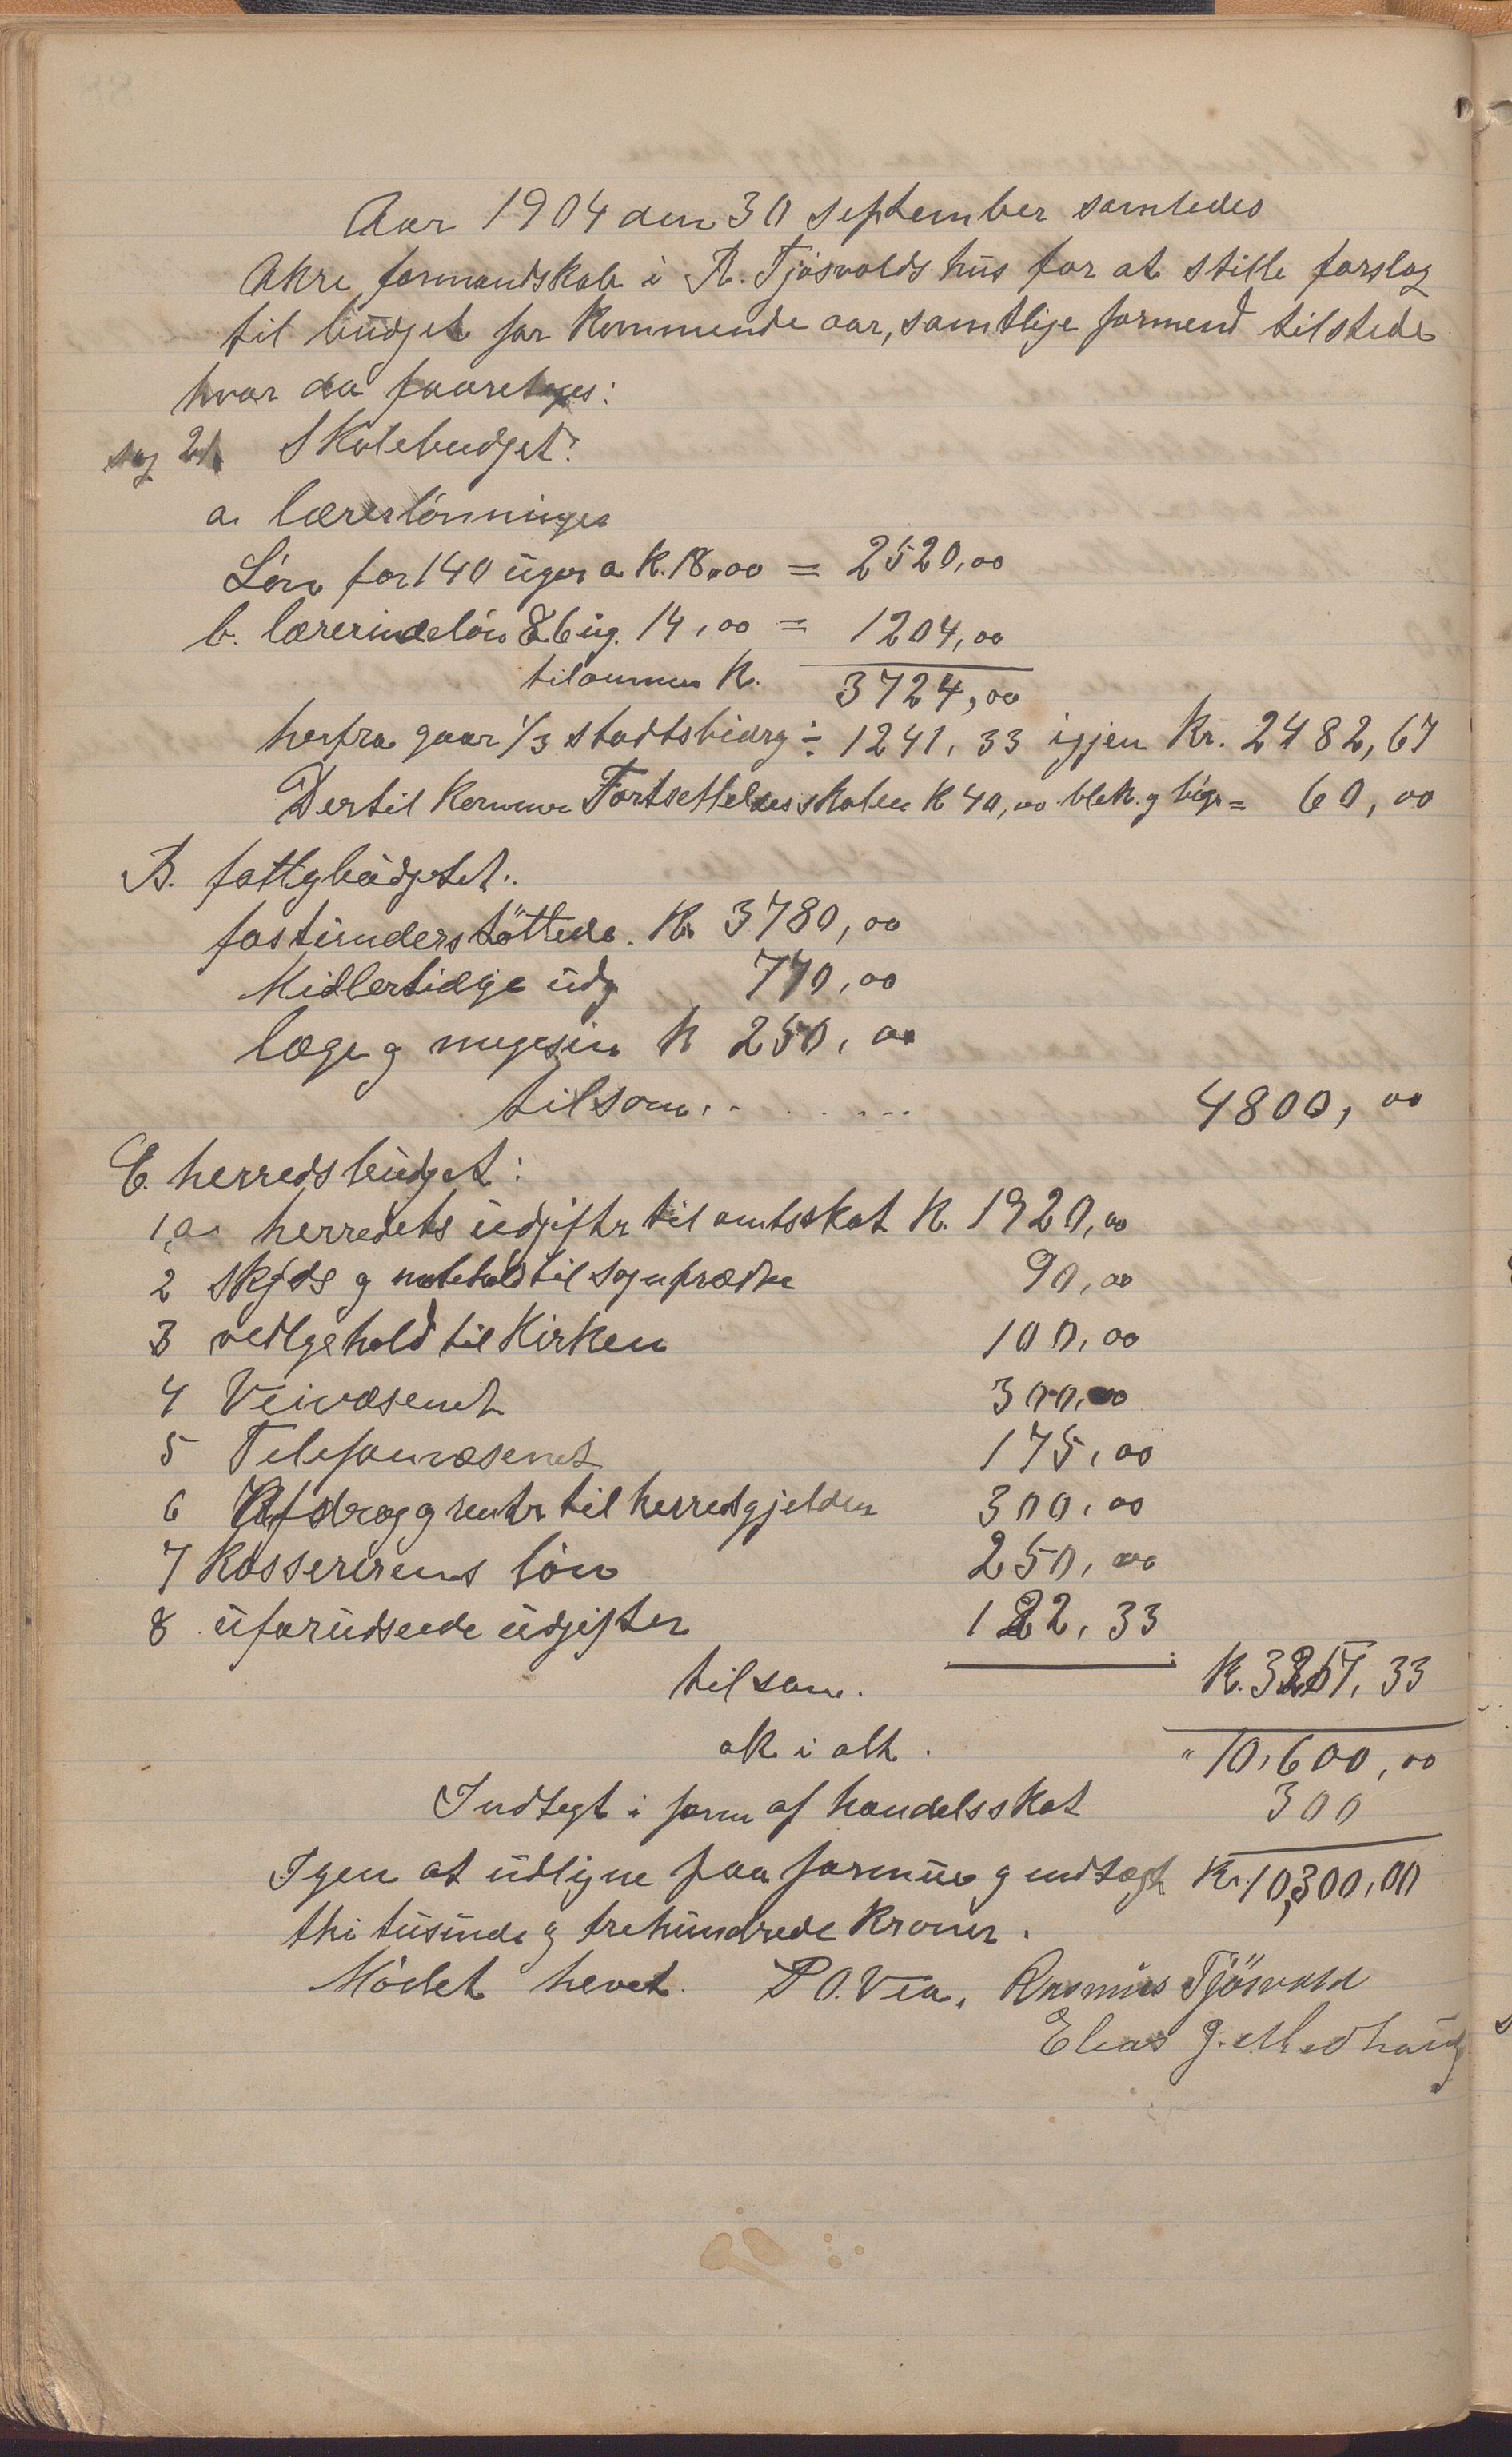 Aar 1904 den 30 september samledes
Akre formandskab i R. Tjøsvolds hus for at stille forslag
til budget for kommende aar, samtlige formend tilstede
hvor da foaretages:
sag 21 Skolebudget:
a. lærerlønninger
Løn for 140 uger a K. 18,00 = 2520,00
b. lærerindeløn 86 ug. 14,00 = 1204,00
tilsammen K. 3724,00
herfra gaar 1/3 statsbidrag ÷ 1241,33 igjen Kr. 2482,67
Dertil kommer Fortsettelsesskolen K 40,00 blek. g = 60,00
B. fattigbudgetet.
fastunderstöttede. Kr 3780,00
Midlertidige udg 770,00
læge g K 250,00
tilsam. . . . . . . 4800,00
C. herredsbudget:
1,a. herredets udgifter til amtsskat K. 1920,00
2 skyds g til sogneprædn 90,00
3 vedlgehold til Kirken 100,00
4 Veivæsenet 300,00
5 Telefonvæsenet 175,00
6 Afdrag g renter til herredsgjelden 300,00
7 Kassererens løn 250,00
8 uforudseede udgifter 122,33
tilsam. K. 3257,33
ok i alt. " 10,600,00
Indtegt i form af handelsskat 300
Igen at udligne paa formue g indtægt Kr. 10,300,00
thi tusinde g trehundrede Kroner.
Mödet hevet. P O. Vea. Rasmus Tjösvold
Elias J. Medhaug